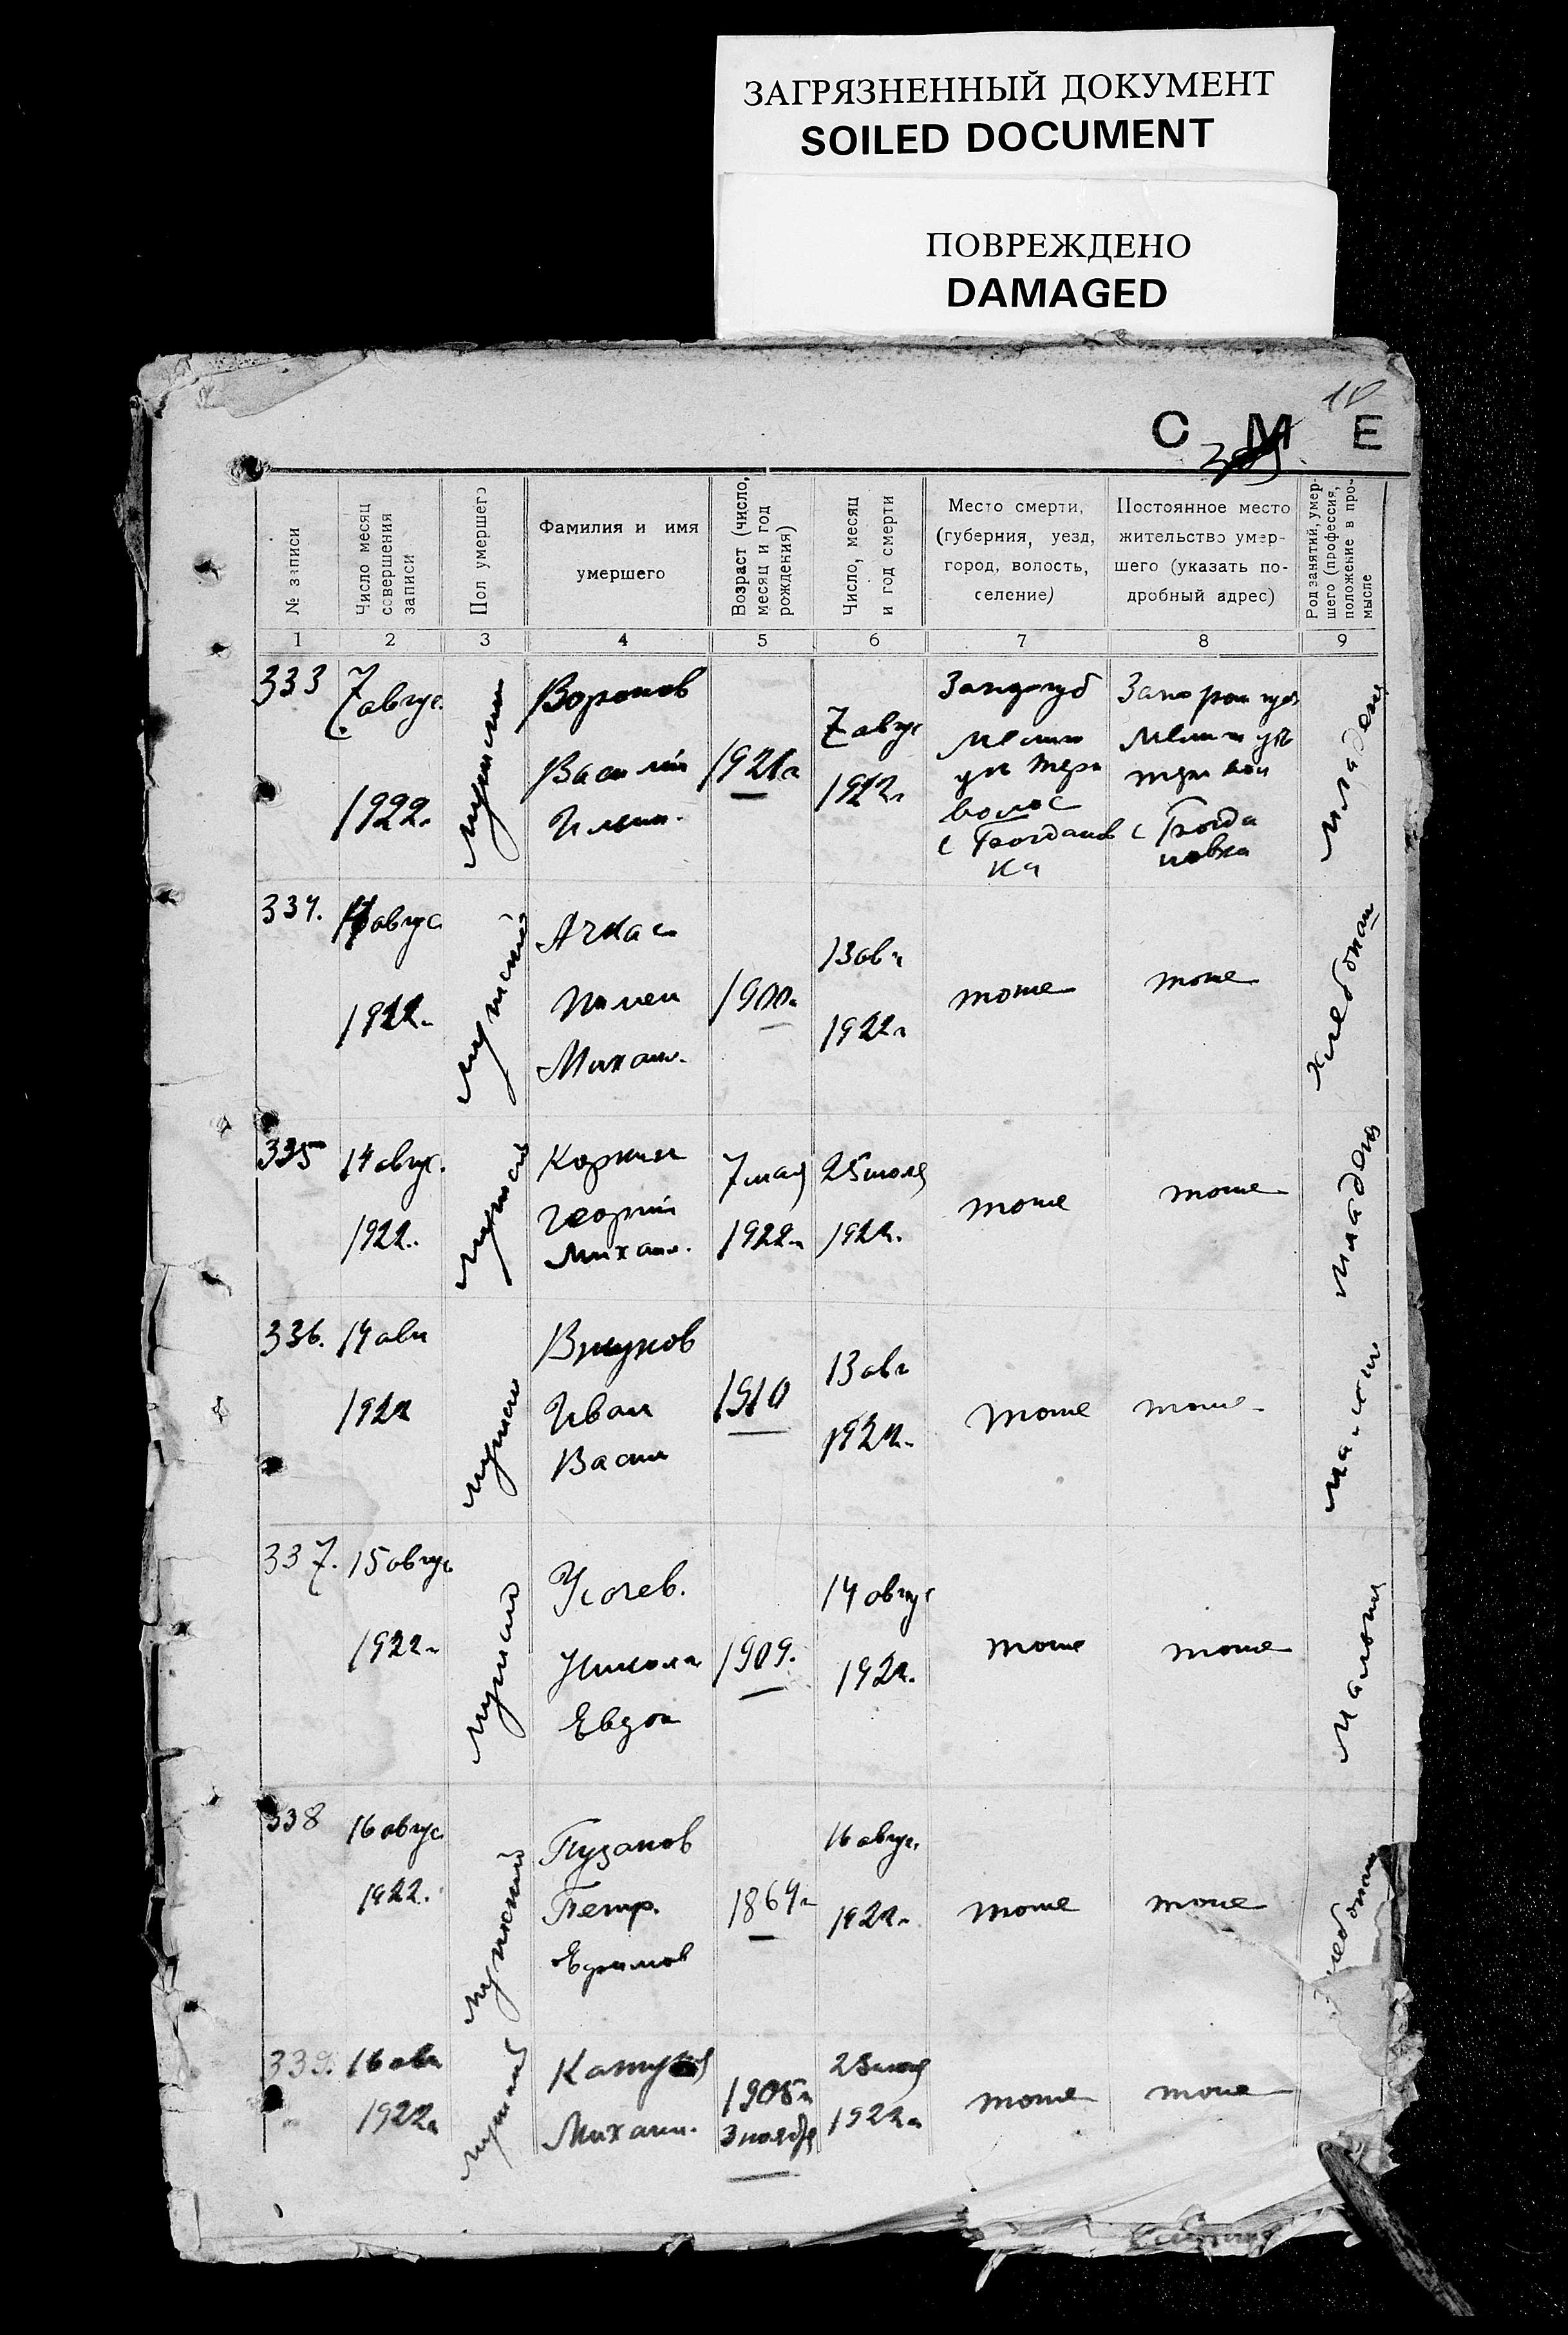 ЗАГРЯЗНЕННЫЙ ДОКУМЕНТ
SOILED DOCUMENT
ПОВРЕЖДЕНО
DAMAGED
10
С М Е
№ записи
Число месяц
совершения
записи
Пол умершего
Фамилия и имя
умершего
Возраст (число,
месяц и год
рождения)
Число, месяц
и год смерти
Место смерти,
(губерния, уезд,
город, волость,
селение)
Постоянное место
жительство умер-
шего (указать по-
дробный адрес)
Род занятий, умер-
шего (профессия,
положение в про-
мысле
1 2 3 4 5 6 7 8 9
333
7 авгус.
1922.
мужской
Воронов
Василий
Ильин.
1921г
7 авгус
1922г
волос
с Богданов
ка
с Богда
новка
младенец
334.
авгус
1922.
мужской
Михаил.
1900г
13 авг
1922г
тоже
тоже
хлебопаш
335
14 авгус.
1922.
мужской
Георгий
Михаил.
7 мая
1922г
25 июля
1922.
тоже
тоже
младенец
336.
14 авг
1922
мужской
Иван
Васил
1910
13 авг
1922.
тоже
тоже
337.
15 август
1922г
мужской
Усачев.
Николай
Евдок
1909.
14 авгус
1922.
тоже
тоже
338
16 авгус
1922.
мужской
Пузанов
Петр.
Ефимов
1864г
16 авгус.
1922г
тоже
тоже
хлебопаш
339.
16 авг
1922г
мужской
Михаил.
1905г
3 ноября
1922г
тоже
тоже